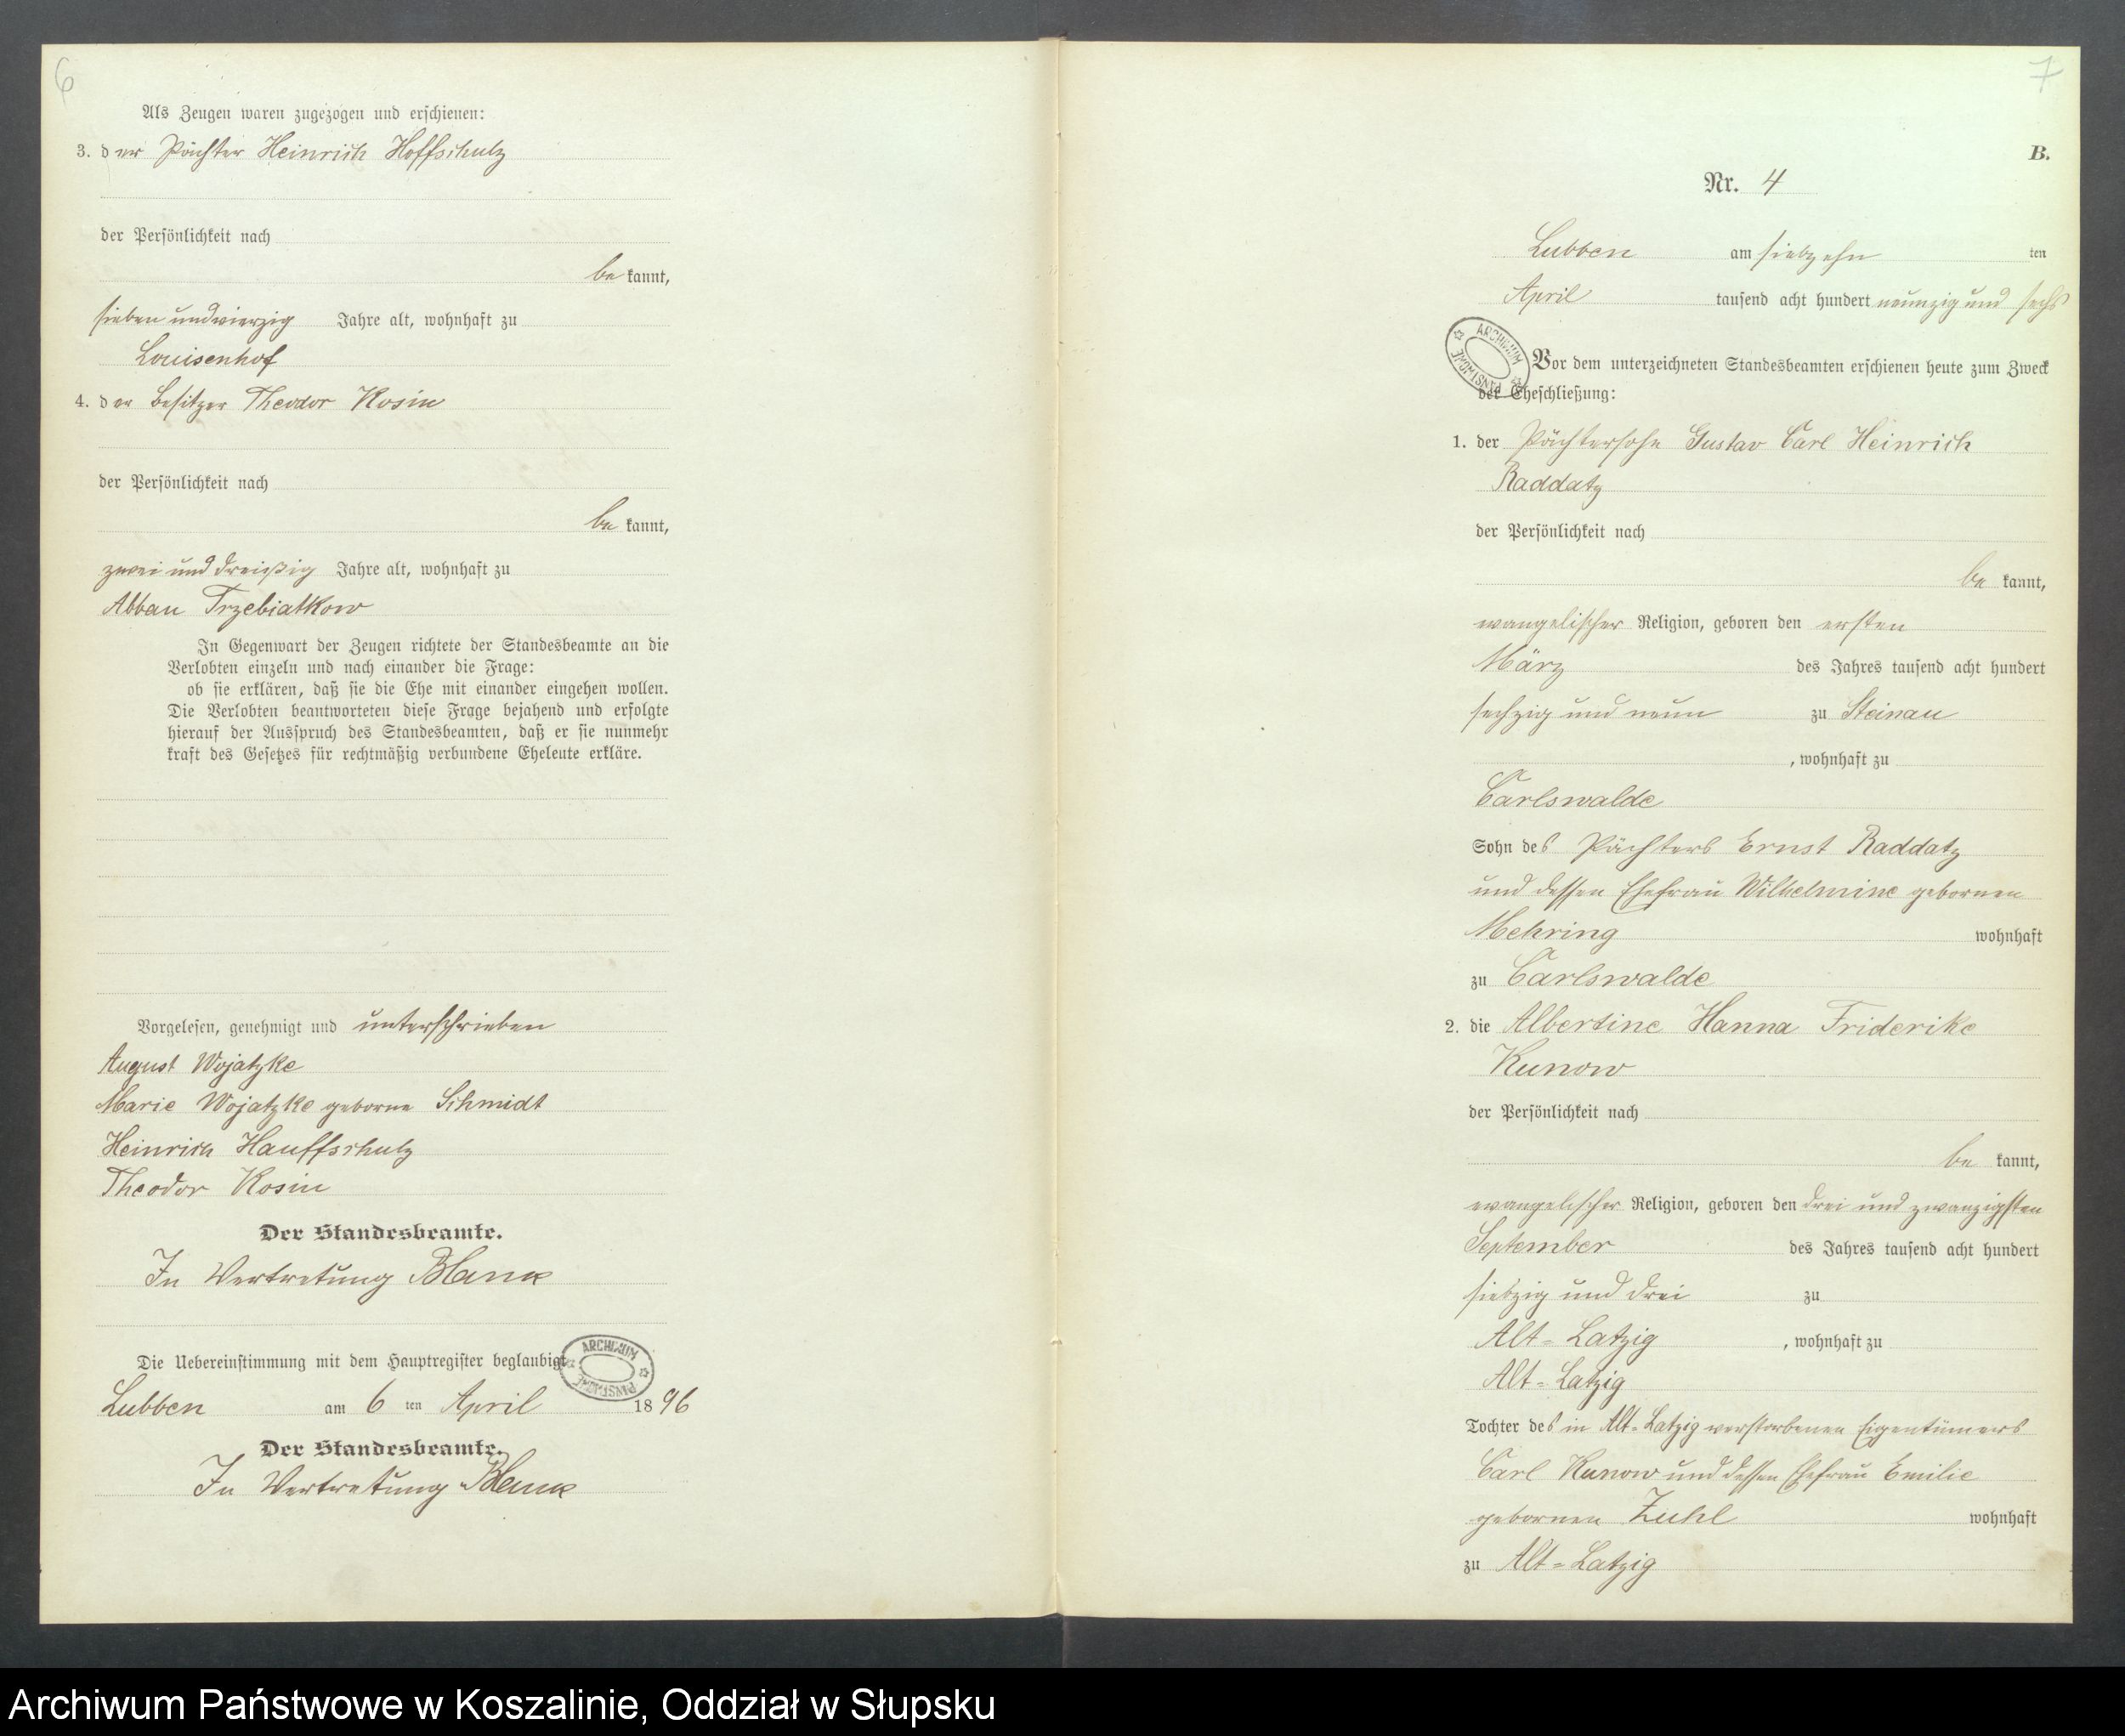 6
Als Zeugen waren zugezogen und erschienen:
3. der Pächter Heinrich Hoffschulz
der Persönlichkeit nach
be kannt,
sieben und vierzig Jahre alt, wohnhaft zu
Louisenhof
4. der Besitzer Theodor Kosin
der Persönlichkeit nach
be kannt,
zwei und dreißig Jahre alt, wohnhaft zu
Abbau Trzebiatkow
In Gegenwart der Zeugen richtete der Standesbeamte an die
Verlobten einzeln und nach einander die Frage:
ob sie erklären, daß sie die Ehe mit einander eingehen wollen.
Die Verlobten beantworteten diese Frage bejahend und erfolgte
hierauf der Ausspruch des Standesbeamten, daß er sie nunmehr
kraft des Gesetzes für rechtmäßig verbundene Eheleute erkläre.
Vorgelesen, genehmigt und unterschrieben
August Wojatzke
Marie Wojatzke geborne Schmidt
Heinrich Hauffschulz
Theodor Kosin
Der Standesbeamte.
In Vertretung Blank
Die Uebereinstimmung mit dem Hauptregister beglaubigt
ARCHIWUM PAŃSTWOWE
Lubben am 6 ten April 18 96
Der Standesbeamte.
In Vertretung Blank
7
B.
Nr. 4
Lubben am siebzehn ten
April tausend acht hundert neunzig und sechs
ARCHIWUM PAŃSTWOWE
Vor dem unterzeichneten Standesbeamten erschienen heute zum Zweck
der Eheschließung:
1. der Pächtersohn Gustav Carl Heinrich
Raddatz
der Persönlichkeit nach
be kannt,
evangelischer Religion, geboren den ersten
März des Jahres tausend acht hundert
sechzig und neun zu Steinau
, wohnhaft zu
Carlswalde
Sohn des Pächters Ernst Raddatz
und dessen Ehefrau Wilhelmine gebornen
Mehring wohnhaft
zu Carlswalde
2. die Albertine Hanna Friderike
Kunow
der Persönlichkeit nach
be kannt,
evangelischer Religion, geboren den drei und zwanzigsten
September des Jahres tausend acht hundert
siebzig und drei zu
Alt-Latzig , wohnhaft zu
Alt-Latzig
Tochter des in Alt-Latzig verstorbenen Eigentümers
Carl Kunow und dessen Ehefrau Emilie
gebornen Zuhl wohnhaft
zu Alt-Latzig
Archiwum Państwowe w Koszalinie, Oddział w Słupsku